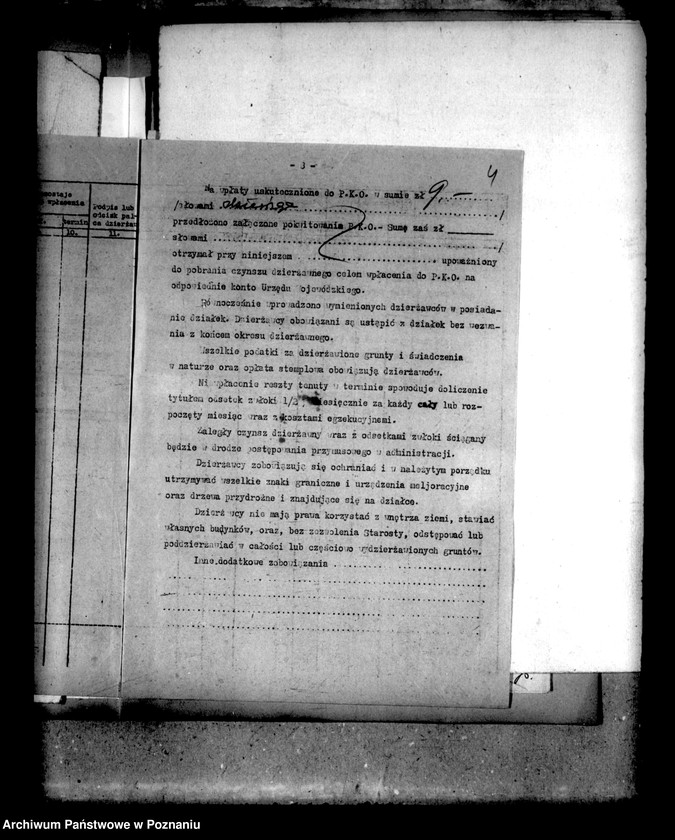 4
- 3 -
zostaje
wpłacenia
Podpis lub
odcisk pal-
ca dzierżaw
termin
10.
11.
Na wpłaty uskutecznione do P.K.O. w sumie zł 9,-
/słowami dziewięć /
przedłożono załączone pokwitowania P.K.O.- Sumę zaś zł
słowami /
otrzymał przy niniejszem . . . . upoważniony
do pobrania czynszu dzierżawnego celem wpłacenia do P.K.O. na
odpowiednie konto Urzędu Wojewódzkiego.
Równocześnie wprowadzono wymienionych dzierżawców w posiada-
nie działek. Dzierżawcy obowiązani są ustąpić z działek bez wezwa-
nia z końcem okresu dzierżawnego.
Wszelkie podatki za dzierżawione grunty i świadczenia
w naturze oraz opłata stemplowa obowiązują dzierżawców.
Niewpłacenie reszty tenuty w terminie spowoduje doliczenie
tytułem odsetek zwłoki 1/2 miesięcznie za każdy cały lub roz-
poczęty miesiąc wraz z kosztami egzekucyjnemi.
Zaległy czynsz dzierżawny wraz z odsetkami zwłoki ściągany
będzie w drodze postępowania przymusowego w administracji.
Dzierżawcy zobowiązują się ochraniać i w należytym porządku
utrzymywać wszelkie znaki graniczne i urządzenia meljoracyjne
oraz drzewa przydrożne i znajdujące się na działce.
Dzierżawcy nie mają prawa korzystać z wnętrza ziemi, stawiać
własnych budynków, oraz, bez zezwolenia Starosty, odstępować lub
poddzierżawiać w całości lub częściowo wydzierżawionych gruntów.
Inne dodatkowe zobowiązania . . . .
Archiwum Państwowe w Poznaniu